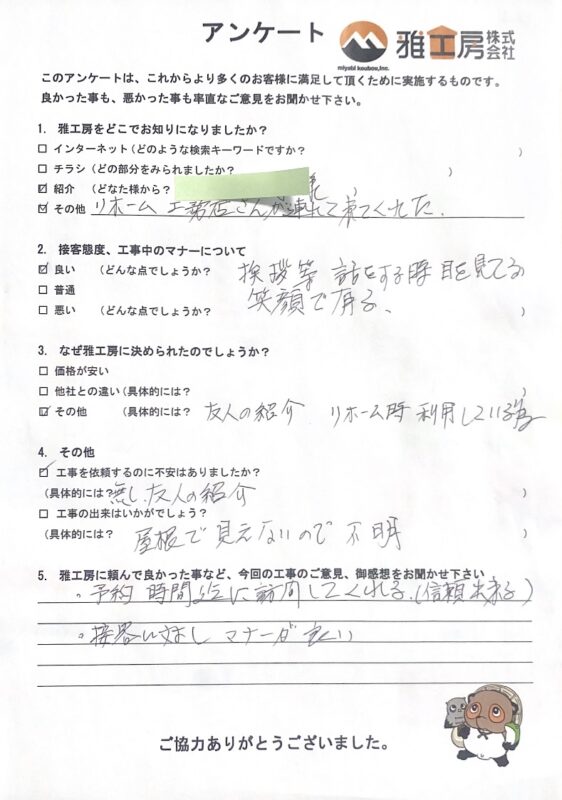 アンケート
雅工房株式会社
miyabi koubou,Inc.
このアンケートは、これからより多くのお客様に満足して頂くために実施するものです。
良かった事も、悪かった事も率直なご意見をお聞かせ下さい。
1. 雅工房をどこでお知りになりましたか？
□ インターネット（どのような検索キーワードですか？ ）
□ チラシ（どの部分をみられましたか？ ）
☑ 紹介 （どなた様から？ ）
☑ その他 リホーム 工務店さんが連れて来てくれた.
2. 接客態度、工事中のマナーについて
☑ 良い （どんな点でしょうか？ 挨拶等 話をする時 目を見てる
□ 普通 笑顔で有る、
□ 悪い （どんな点でしょうか？ ）
3. なぜ雅工房に決められたのでしょうか？
□ 価格が安い
□ 他社との違い（具体的には？ ）
☑ その他 （具体的には？ 友人の紹介 リホーム時 利用している
4. その他
☑ 工事を依頼するのに不安はありましたか？
（具体的には？ 無し 友人の紹介 ）
□ 工事の出来はいかがでしょう？
（具体的には？ 屋根で見えないので 不明 ）
5. 雅工房に頼んで良かった事など、今回の工事のご意見、御感想をお聞かせ下さい
。予約 時間迄に訪問してくれる.（信頼出来る）
。接客に対し マナーが良い
ご協力ありがとうございました。